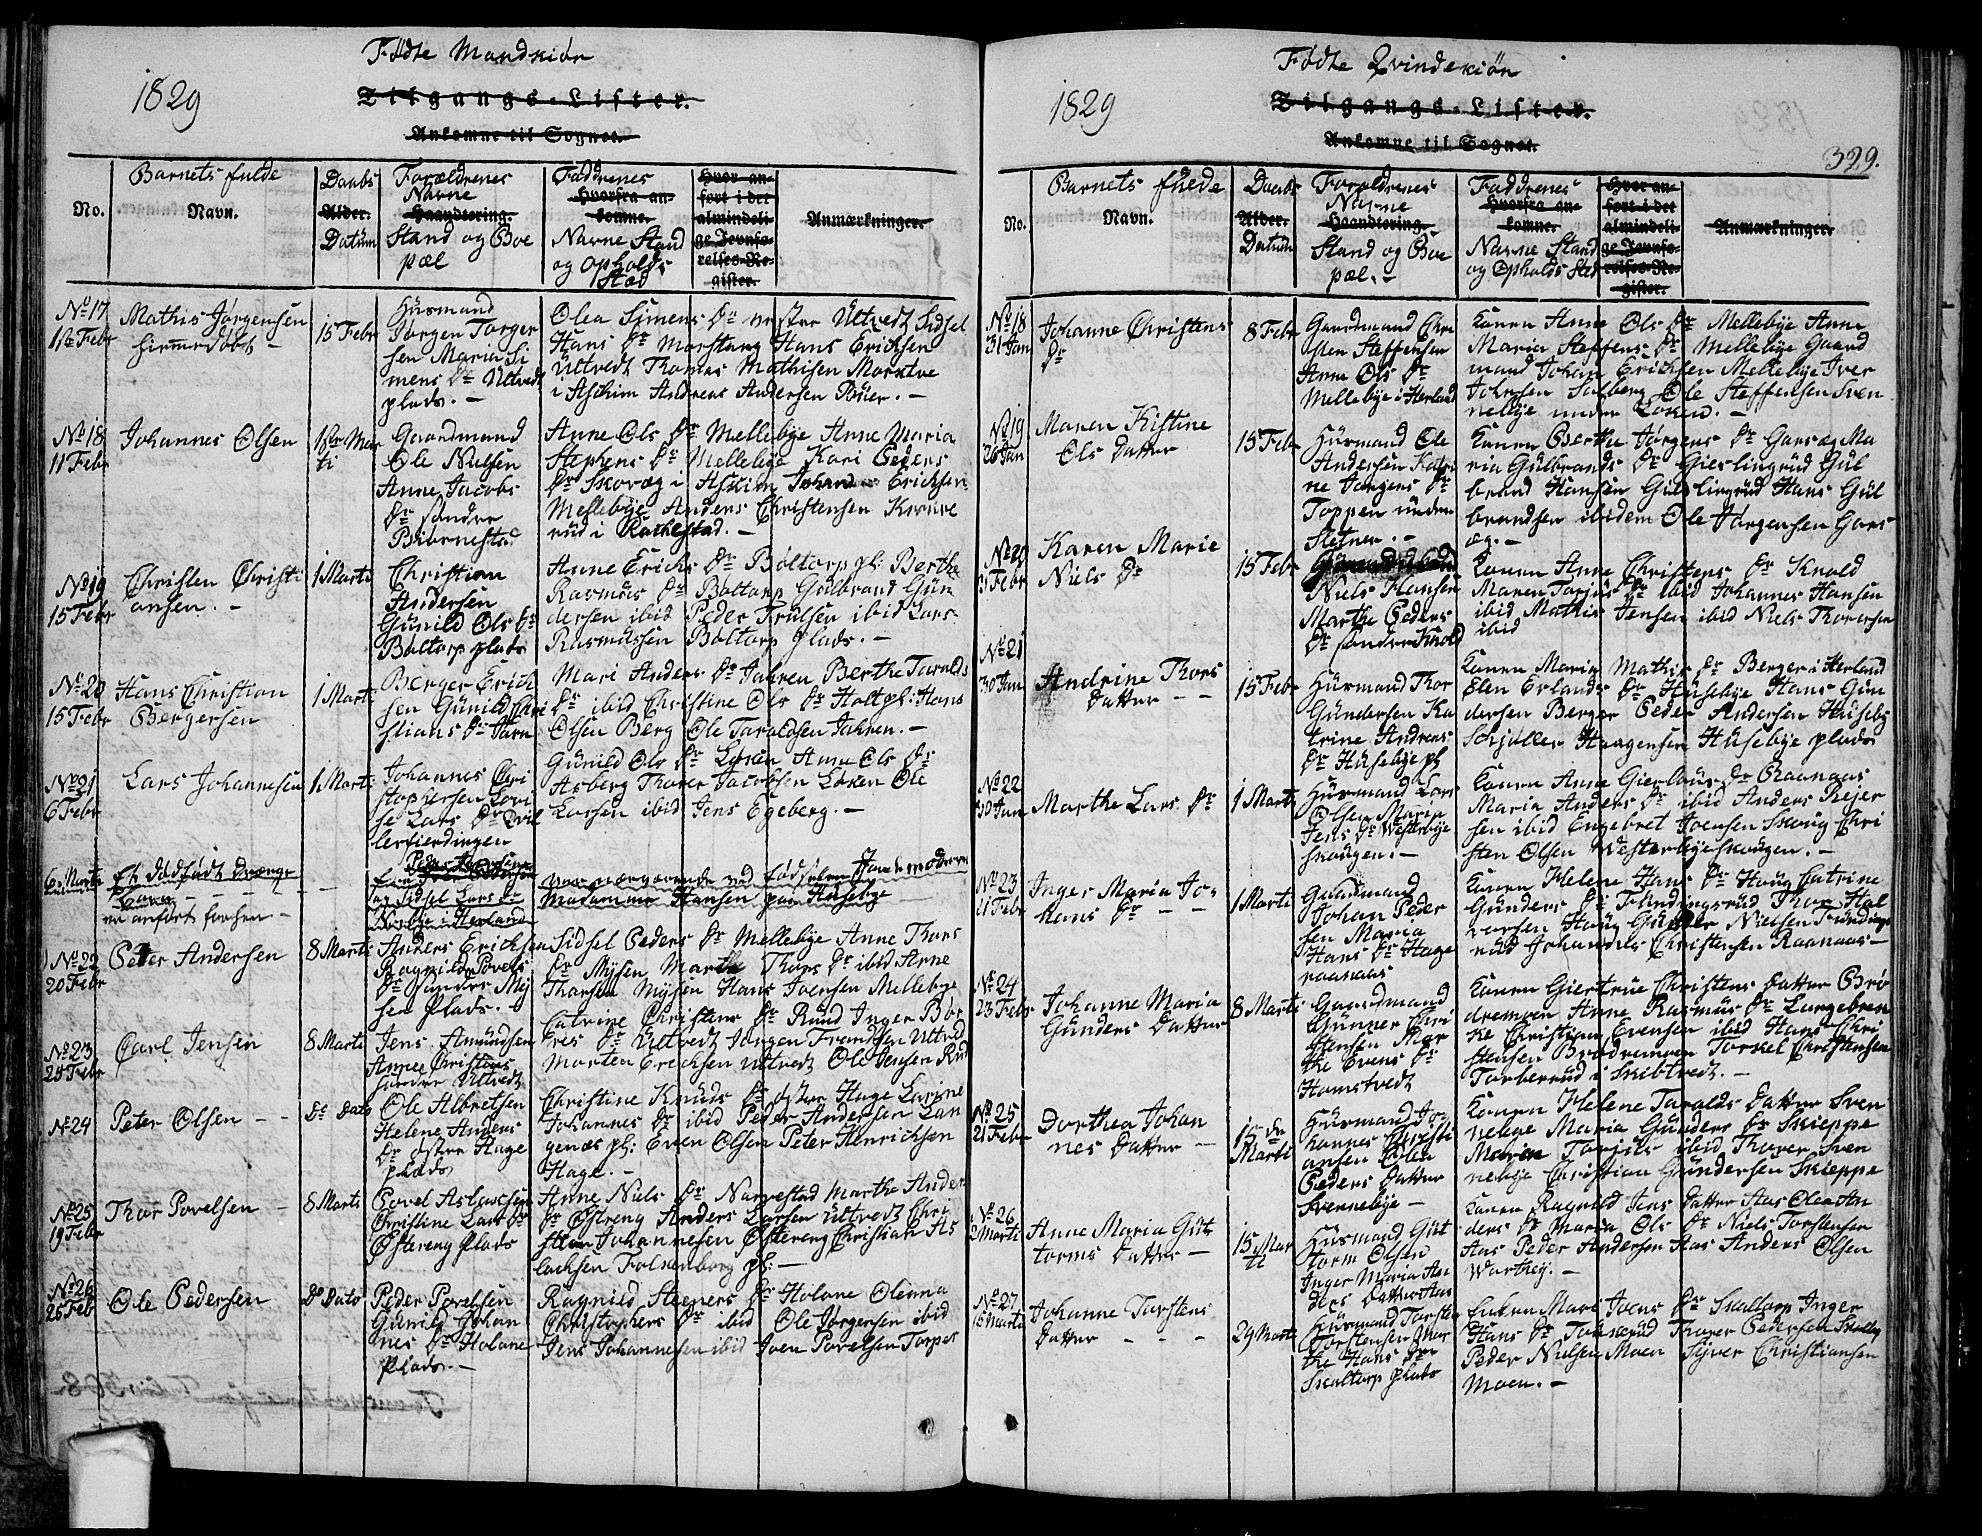 Fødte Mandkiøn
1829
Tilgangs-Lister.
Ankomne til Sognet.
Barnets fulde
No.
Navn.
Daabs
Alder.
Datum
Forældrenes
Navne
Haandtering.
Stand og Boe
pæl
Faddrenes
Hvorfra an-
komne.
Navne Stand
og Opholds
Stæd
Hvor an-
ført i det
almindeli-
ge Jevnfø-
relses-Re-
gister.
Anmærkninger.
No 17
Febr
Mathis Jørgensen
hiemmedøbt -
15 Febr
Huusmand
Jørgen Torger
sen Maria Si
mens Dr Ultvedt
plads. -
Olea Simens Dr vestre Ultvedt Sidsel
Hans Dr Morstang Hans Erichsen
Ultvedt Thomas Mathisen
i Aschim Andreas Andersen Büer. -
No 18
11 Febr
Johannes Olsen
1ste Mar
ti
Gaardmand
Ole Nielsen
Anne Jacobs
Dr søndre
Biørnestad
Anne Ols Dr Mellebye Anne Maria
Stephens Dr Mellebye Kari Peders
Dr Skovæg i Askim Johan Erichsen
Mellebye Anders Christensen
rüd i Rakkestad. -
No 19
15 Febr
Christen Christi
ansen. -
1 Marti
Christian
Andersen
Günild Ols Dr
Boltorp plads
Anne Erichs Dr Boltorp pl: Berthe
Rasmüs Dr Boltorp Gülbrand Gün
dersen ibid Peder Trülsen ibid Lars
Rasmussen Boltorp plads. -
No 20
15 Febr
Hans Christian
Bergersen
1 Marti
Berger Erich
sen Günild Chri
stians Dr Jarn
Mari Anders Dr Jahren Berthe Taralds
Dr ibid Christine Ols Dr Holt pl: Hans
Olsen Berg Ole Taraldsen Jahren. -
No 21
6 Febr
Lars Johannesen
1 Marti
Johannes Chri
stophersen Lovi
se Lars Dr
lerfierdingen
Günild Ols Dr Løken Anne Ols Dr
Asberg Thorer Jacobsen Løken Ole
Larsen ibid Jens Egeberg. -
6te Marti
Et dødfødt Drænge
barn -
anført forhen -
og Sidsel Lars Dr
Norbye i Herland
var nærværende ved fødselen Jordemoderen
Madamme Hansen paa Hüsebye
No 22
20 Febr
Peter Andersen
8 Marti
Anders Erichsen
Ragnild Povels
Dr søndre My
sen plads.
Sidsel Peders Dr Mellebye Anne Thors
Dr Mysen Marthe Thors Dr ibid Arne
Thorsen Mysen Hans Joensen Mellebye
No 23
25 Febr
Carl Jensen
8 Marti
Jens Amündsen
Anne Christens
søndre Ultvedt
Catrine Christens Dr Rüud Inger Bør
res Dr Ultvedt Jørgen Frandsen Ultvedt
Morten Erichsen Ultvedt Ole Jensen Rüd
No 24
Peter Olsen - -
Do Dato
Ole Albretsen
Helene Anders
Dr østre Hage
plads
Christine Knüds Dr østre Hage Larine
Johannes Dr ibid Peder Andersen Lan
genæs pl: Even Olsen Peter Henrichsen
Hage. -
No 25
19 Febr
Thor Povelsen -
8 Marti
Povel Aslachsen
Christine Lars Dr
Østereng plads
Anne Niels Dr Narvestad Marthe Ander
Dr Østreng Anders Larsen Ultvedt Chri
sten Johannesen Østereng Christian As
lachsen Falkenborg pl: -
No 26
25 Febr
Ole Pedersen
Do Dato
Peder Povelsen
Günild Johan
nes Dr Holane
plads. -
Ragnild Steeners Dr Holane Olenna
Christophers Dr ibid Ole Jørgensen ibid
Jens Johannesen ibid Joen Povelsen Torper
Fødte Qvindekiøn
1829
Tilgangs-Lister.
Ankomne til Sognet.
329.
Barnets fulde
No.
Navn.
Daabs
Alder.
Datum
Forældrenes
Navne
Haandtering.
Stand og Boe
pæl. -
Faddrenes
Hvorfra an-
komne.
Navne Stand
og Opholds Sted
Hvor an-
ført i det
almindeli-
ge Jevnfø-
relses-Re-
gister.
Anmærkninger.
No 18
31 Jan
Johanne Christens
Dr
8 Febr
Gaardmand Chri
sten Steffensen
Anne Ols Dr
Mellebye i Herland
Konen Anne Ols Dr Mellebye Anne
Maria Steffens Dr Mellebye Gaard
mand Johan Erichsen Mellebye Iver
Johnsen Solberg Ole Steffensen Sven
nebye under Løken. -
No 19
26 Jan
Maren Kistine
Ols Datter
15 Febr
Hüsmand Ole
Andersen Katri
ne Jørgens Dr
Toppen ünder
Sletner. -
Konen Berthe Jørgens Dr Garsæg Ma
ria Gülbrands Dr Gieslingrüd Gül
brand Hansen Güslingrüd Hans Gül
brandsen ibidem Ole Jørgensen Gars
æg. -
No 20
Febr
Karen Marie
Niels Dr
15 Febr
Niels Hansen
Marthe Peders
Dr søndre Knold
Konen Anne Christens Dr Knold
Maren Torjüs Dr ibid Johannes Hansen
ibid Mathis Jensen ibid Niels Thorersen
ibid
No 21
30 Jan
Andrine Thors
Datter - -
15 Febr
Hüsmand Thor
Gündersen Ka
trine Andreas
Dr Hüsebye pl
Konen Maria Mathis Dr Berger i Herland
Elen Erlands Dr Hüsebye Hans Gün
dersen Berger Peder Andersen Hüseby
Schjuller Haagensen Hüsebye plads
No 22
30 Jan
Marthe Lars Dr
1 Marti
Hüsmand Lars
Olsen Maria
Jens Dr Westerbye
skougen. -
Konen Anne Gierlaus Dr Raanaas
Maria Anders Dr ibid Anders Reier
sen ibid Engebret Joensen Skoug Chri
sten Olsen Westerbyeskougen. -
No 23
21 Febr
Inger Maria Jo-
hans Dr - -
1 Marti
Gaardmand
Johan Peder
sen Maria
Hans Dr Hage
raanaas
Konen Helene Hans Dr Haug Catrine
Günders Dr Thor Hal
vorsen Haug Günder Nielsen
rüd Johannes Christensen Raanaas -
No 24
23 Febr
Johanne Maria
Günders Datter
8 Marti
Gaardmand
Günner Chri
stensen Mar
the Evens Dr
Homstvedt
Konen Giertrue Christens Datter Brø
dremoen Anne Rasmüs Dr Langebræn
ke Christian Evensen ibid Hans Chri
stensen Brødremoen Torkel Christensen
Torberrüd i Skibtvedt. -
No 25
21 Febr
Dorthea Johan
nes Datter -
15 de
Marti
Hüsmand Jo-
hannes Christi
ansen Elen
Peders Datter
Svennebye -
Konen Helene Taralds Datter Sven
nebye Maria Günders Dr Skieppe
Maria Torjüs ibid Thorer Sven
nebye Christian Gündersen Skieppe
No 26
2 Marti
Anne Maria Güt
torms Datter -
15 Mar
ti
Hüsmand Güt
torm Olsen
Inger Maria An
ders Datter Aas
Konen Ragnild Jens Datter Aas Olea An
ders Dr Maria Ols Dr Niels Torstensen
Aas Peder Andersen Aas Anders Olsen
Warthey. -
No 27
15 Marti
Johanne Torstens
Datter - - -
29 Marti
Hüsmand Torsten
Torstensen Mar
the Hans Dr
Skaltorp plads
Enken Mari Joens Dr Skaltorp Inger
Hans Dr Toüskrüd Thorer Pedersen
Peder Nielsen Moen Syver Christiansen
Moen. -